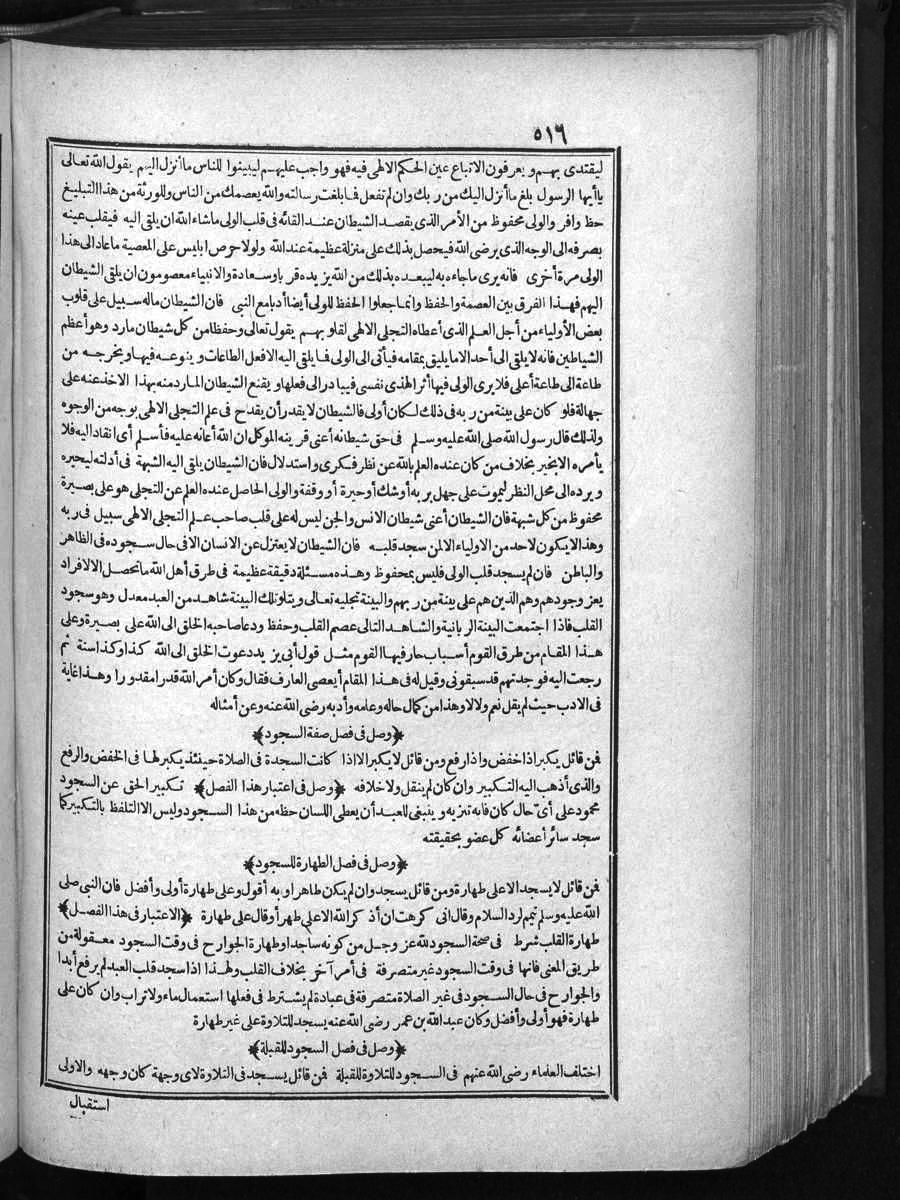 ٥١٦
ليقتدى بهم ويعرفون الاتباع عين الحكم الالهى فيه فهو واجب عليهم ليبينوا للناس ما أنزل اليهم يقول الله تعالى
ياأيها الرسول بلغ ما أنزل اليك من ربك وان لم تفعل فما بلغت رسالته والله يعصمك من الناس وللورثة من هذا التبليغ
حظ وافر والولى محفوظ من الأمر الذى يقصد الشيطان عند القائه فى قلب الولى ما شاء الله ان يلقى اليه فيقلب عينه
بصرفه الى الوجه الذى يرضى الله فيحصل بذلك على منزلة عظيمة عند الله ولولا حرص ابليس على المعصية ما عاد الى هذا
الولى مرة أخرى فانه يرى ما جاءه به ليبعده بذلك من الله يزيده قربا وسعادة والانبياء معصومون ان يلقى الشيطان
اليهم فهذا الفرق بين العصمة والحفظ وانما جعلوا الحفظ للولى أيضا أدبا مع النبى فان الشيطان ماله سبيل على قلوب
بعض الأولياء من أجل العلم الذى أعطاه التجلى الالهى لقلوبهم يقول تعالى وحفظا من كل شيطان مارد وهو أعظم
الشياطين فانه لا يلقى الى أحد الا ما يليق بمقامه فيأتى الى الولى فما يلقى اليه الا فعل الطاعات وينوعه فيها ويخرجه من
طاعة الى طاعة أعلى فلا يرى الولى فيها أثر الهذى نفسى فيبادر الى فعلها ويقنع الشيطان المارد منه بهذا الاخذ عنه على
جهالة فلو كان على بينة من ربه فى ذلك لكان أولى فالشيطان لا يقدر أن يقدح فى علم التجلى الالهى بوجه من الوجوه
ولذلك قال رسول الله صلى الله عليه وسلم فى حق شيطانه أعنى قرينه الموكل ان الله أعانه عليه فأسلم أى انقاد اليه فلا
يأمره الا بخير بخلاف من كان عنده العلم بالله عن نظر فكرى واستدلال فان الشيطان يلقى اليه الشبهة فى أدلته ليحيره
ويرده الى محل النظر ليموت على جهل بربه أو شك أو حيرة أو وقفة والولى الحاصل عنده العلم عن التجلى هو على بصيرة
محفوظ من كل شبهة فان الشيطان أعنى شيطان الانس والجن ليس له على قلب صاحب علم التجلى الالهى سبيل فى ربه
وهذا لا يكون لاحد من الاولياء الا لمن سجد قلبه فان الشيطان لا يعتزل عن الانسان الا فى حال سجوده فى الظاهر
والباطن فان لم يسجد قلب الولى فليس بمحفوظ وهذه مسئلة دقيقة عظيمة فى طرق أهل الله ما تحصل الا لافراد
يعز وجودهم وهم الذين هم على بينة من ربهم والبينة تجليه تعالى ويتلو تلك البينة شاهد من العبد معدل وهو سجود
القلب فاذا اجتمعت البينة الربانية والشاهد التالى عصم القلب وحفظ ودعا صاحبه الخلق الى الله على بصيرة وعلى
هذا المقام من طرق القوم أسباب حار فيها القوم مثل قول أبى يزيد دعوت الخلق الى الله كذا وكذا سنة ثم
رجعت اليه فوجدتهم قد سبقونى وقيل له فى هذا المقام أيعصى العارف فقال وكان أمر الله قدرا مقدورا وهذا غاية
فى الادب حيث لم يقل نعم ولا لا وهذا من كمال حاله وعلمه وأدبه رضى الله عنه وعن أمثاله
﴿وصل فى فصل صفة السجود﴾
فمن قائل يكبر اذا خفض واذا رفع ومن قائل لا يكبر الا اذا كانت السجدة فى الصلاة حينئذ يكبر لها فى الخفض والرفع
والذى أذهب اليه التكبير وان كان لم ينقل ولا خلافه ﴿وصل فى اعتبار هذا الفصل﴾ تكبير الحق عن السجود
محمود على أى حال كان فانه تنزيه وينبغى للعبد أن يعطى اللسان حظه من هذا السجود وليس الا التلفظ بالتكبير كما
سجد سائر أعضائه كل عضو بحقيقته
﴿وصل فى فصل الطهارة للسجود﴾
فمن قائل لا يسجد الا على طهارة ومن قائل يسجد وان لم يكن طاهرا وبه أقول وعلى طهارة أولى وأفضل فان النبى صلى
الله عليه وسلم تيمم لرد السلام وقال انى كرهت ان أذكر الله الا على طهر أو قال على طهارة ﴿الاعتبار فى هذا الفصل﴾
طهارة القلب شرط فى صحة السجود لله عز وجل من كونه ساجدا وطهارة الجوارح فى وقت السجود معقولة من
طريق المعنى فانها فى وقت السجود غير متصرفة فى أمر آخر بخلاف القلب ولهذا اذا سجد قلب العبد لم يرفع أبدا
والجوارح فى حال السجود فى غير الصلاة متصرفة فى عبادة لم يشترط فى فعلها استعمال ماء ولا تراب وان كان على
طهارة فهو أولى وأفضل وكان عبد الله بن عمر رضى الله عنه يسجد للتلاوة على غير طهارة
﴿وصل فى فصل السجود للقبلة﴾
اختلف العلماء رضى الله عنهم فى السجود للتلاوة للقبلة فمن قائل يسجد فى التلاوة لاى وجهة كان وجهه والاولى
استقبال